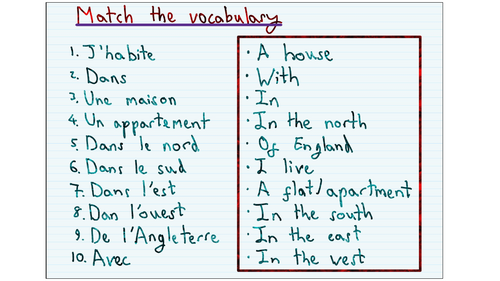 Match the vocabulary
1. J'habite
2. Dans
3. Une maison
4. Un appartement
5. Dans le nord
6. Dans le sud
7. Dans l'est
8. Dan l'ouest
9. De l'Angleterre
10. Avec
· A house
· With
· In
· In the north
· Of England
· I live
· A flat/apartment
· In the south
· In the east
· In the west